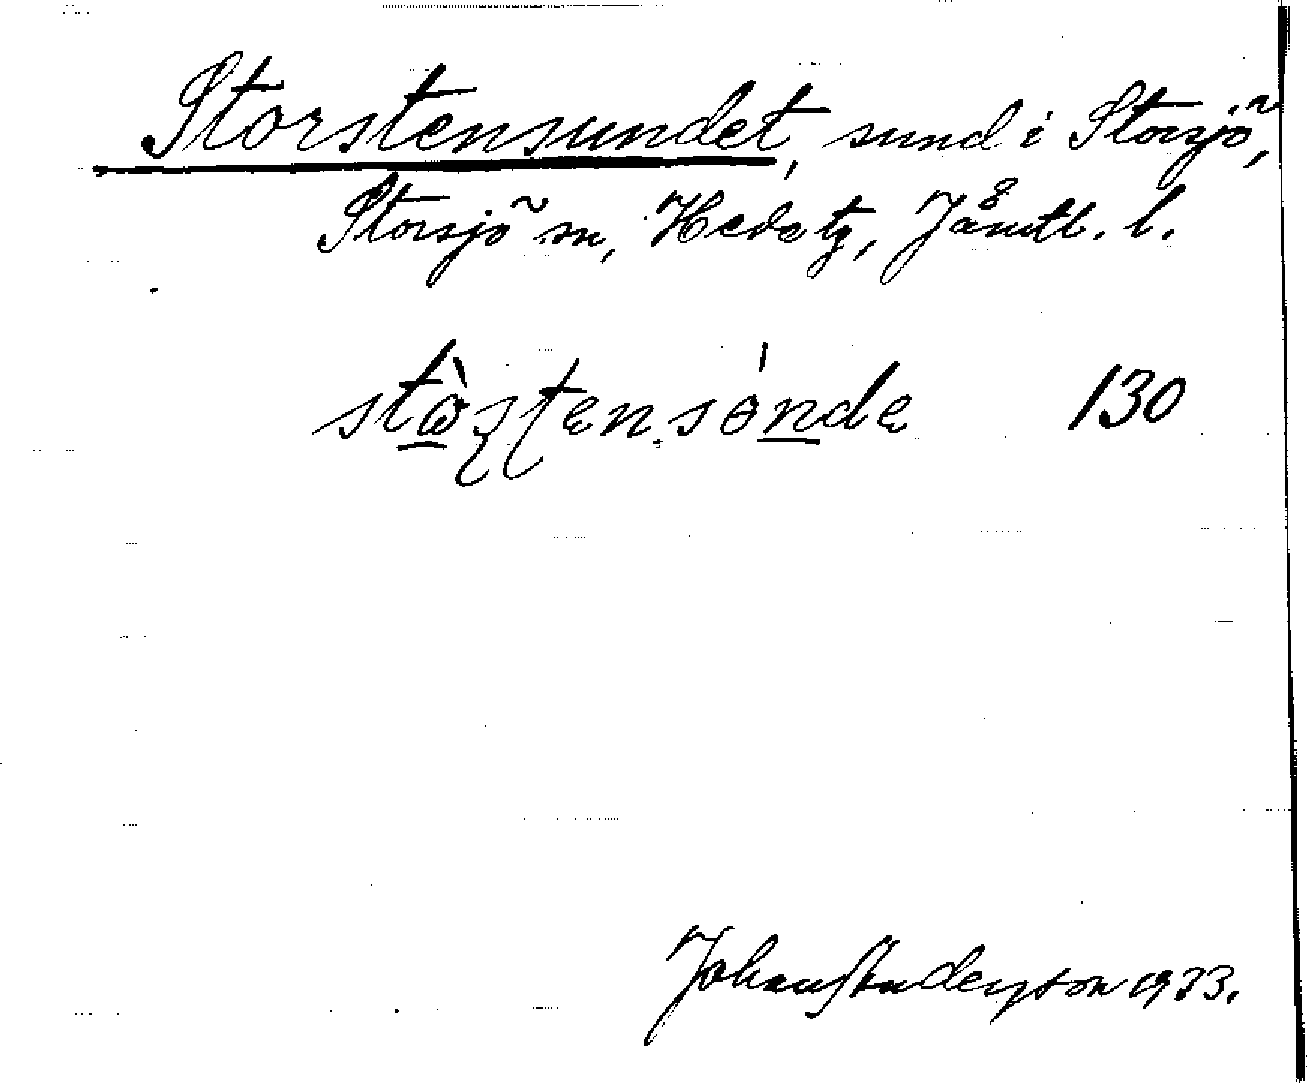 Storstensundet, sund i Storsjö,
Storsjö sn, Hede tg, Jämtl. l.
stò̱ʂʈensònde 130
Johan Anderson 1933.